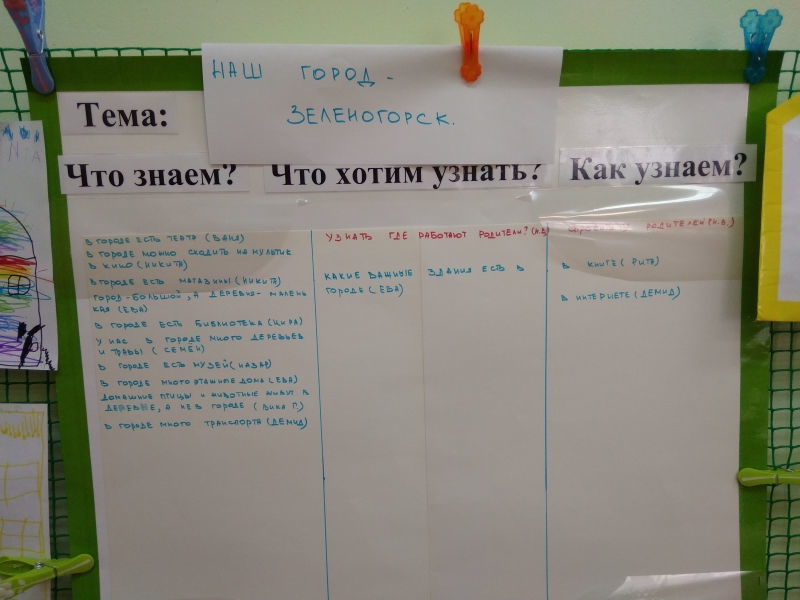 НАШ ГОРОД-
ЗЕЛЕНОГОРСК.
Тема:
Что знаем?
В ГОРОДЕ ЕСТЬ ТЕАТР (ВАНЯ)
В ГОРОДЕ МОЖНО СХОДИТЬ НА МУЛЬТИК
В КИНО (НИКИТА)
В ГОРОДЕ ЕСТЬ МАГАЗИНЫ (НИКИТА)
ГОРОД-БОЛЬШОЙ, А ДЕРЕВНЯ-МАЛЕНЬ
КАЯ (ЕВА)
В ГОРОДЕ ЕСТЬ БИБЛИОТЕКА (КИРА)
У НАС В ГОРОДЕ МНОГО ДЕРЕВЬЕВ
И ТРАВЫ (СЕМЁН)
В ГОРОДЕ ЕСТЬ МУЗЕЙ (НАЗАР)
В ГОРОДЕ МНОГОЭТАЖНЫЕ ДОМА (ЕВА)
ДОМАШНИЕ ПТИЦЫ И ЖИВОТНЫЕ ЖИВУТ В
ДЕРЕВНЕ, А НЕ В ГОРОДЕ (ВИКА Г.)
В ГОРОДЕ МНОГО ТРАНСПОРТА (ДЕМИД)
Что хотим узнать?
УЗНАТЬ ГДЕ РАБОТАЮТ РОДИТЕЛИ? (Н.В.)
КАКИЕ ВАЖНЫЕ ЗДАНИЯ ЕСТЬ В
ГОРОДЕ (ЕВА)
Как узнаем?
РОДИТЕЛЕЙ (Н.В.)
В КНИГЕ (РИТА)
В ИНТЕРНЕТЕ (ДЕМИД)